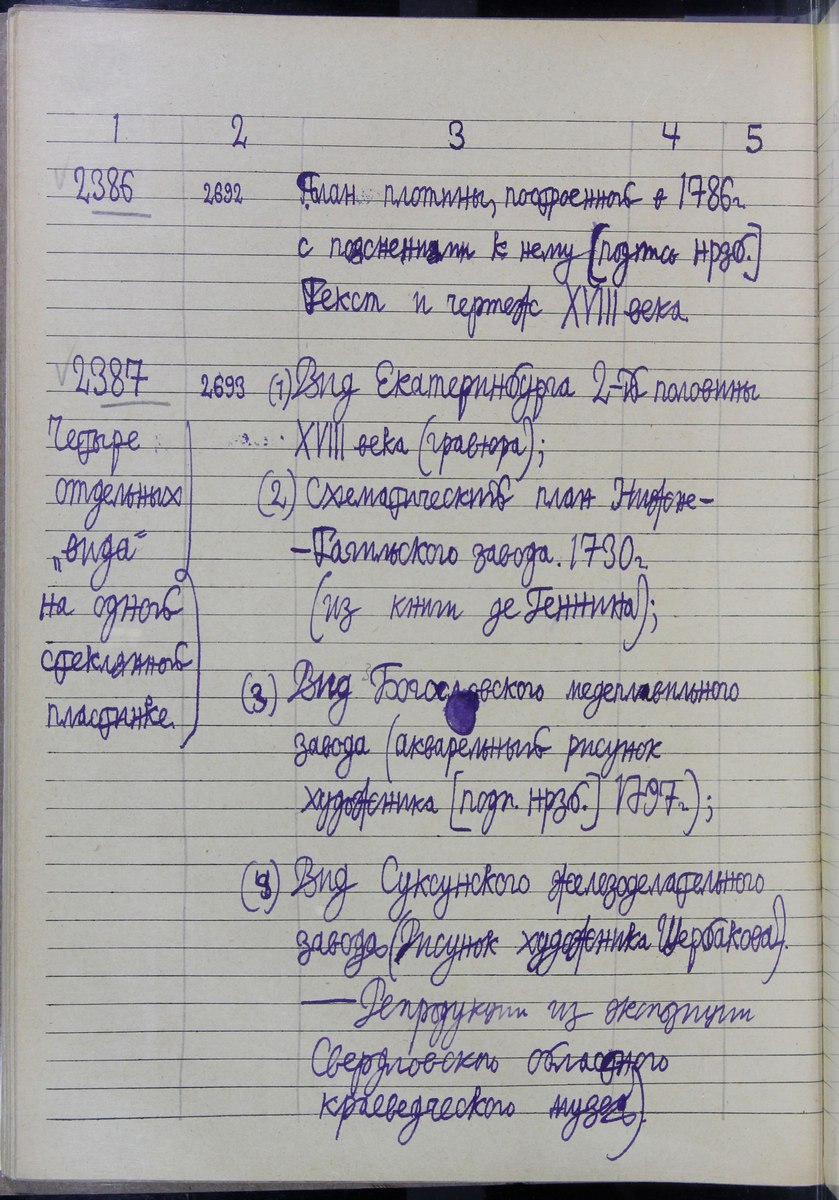 1 2 3 4 5
2386 2692 План плотины, построенной в 1786г.
с пояснениями к нему [подпись нрзб.]
Текст и чертеж XVIII века.
2387 2693 (1) Вид Екатеринбурга 2-й половины
Четыре XVIII века (гравюра);
отдельных (2) Схематический план Нижне-
„вида“ -Тагильского завода. 1730г.
на одной (из книги де Геннина);
стеклянной
пластинке. (3) Вид Богословского медеплавильного
завода (акварельный рисунок
художника [подп. нрзб.] 1797г.);
(4) Вид Суксунского железоделательного
завода (Рисунок художника Щербакова).
— Репродукции из экспозиции
Свердловского областного
краеведческого музея)